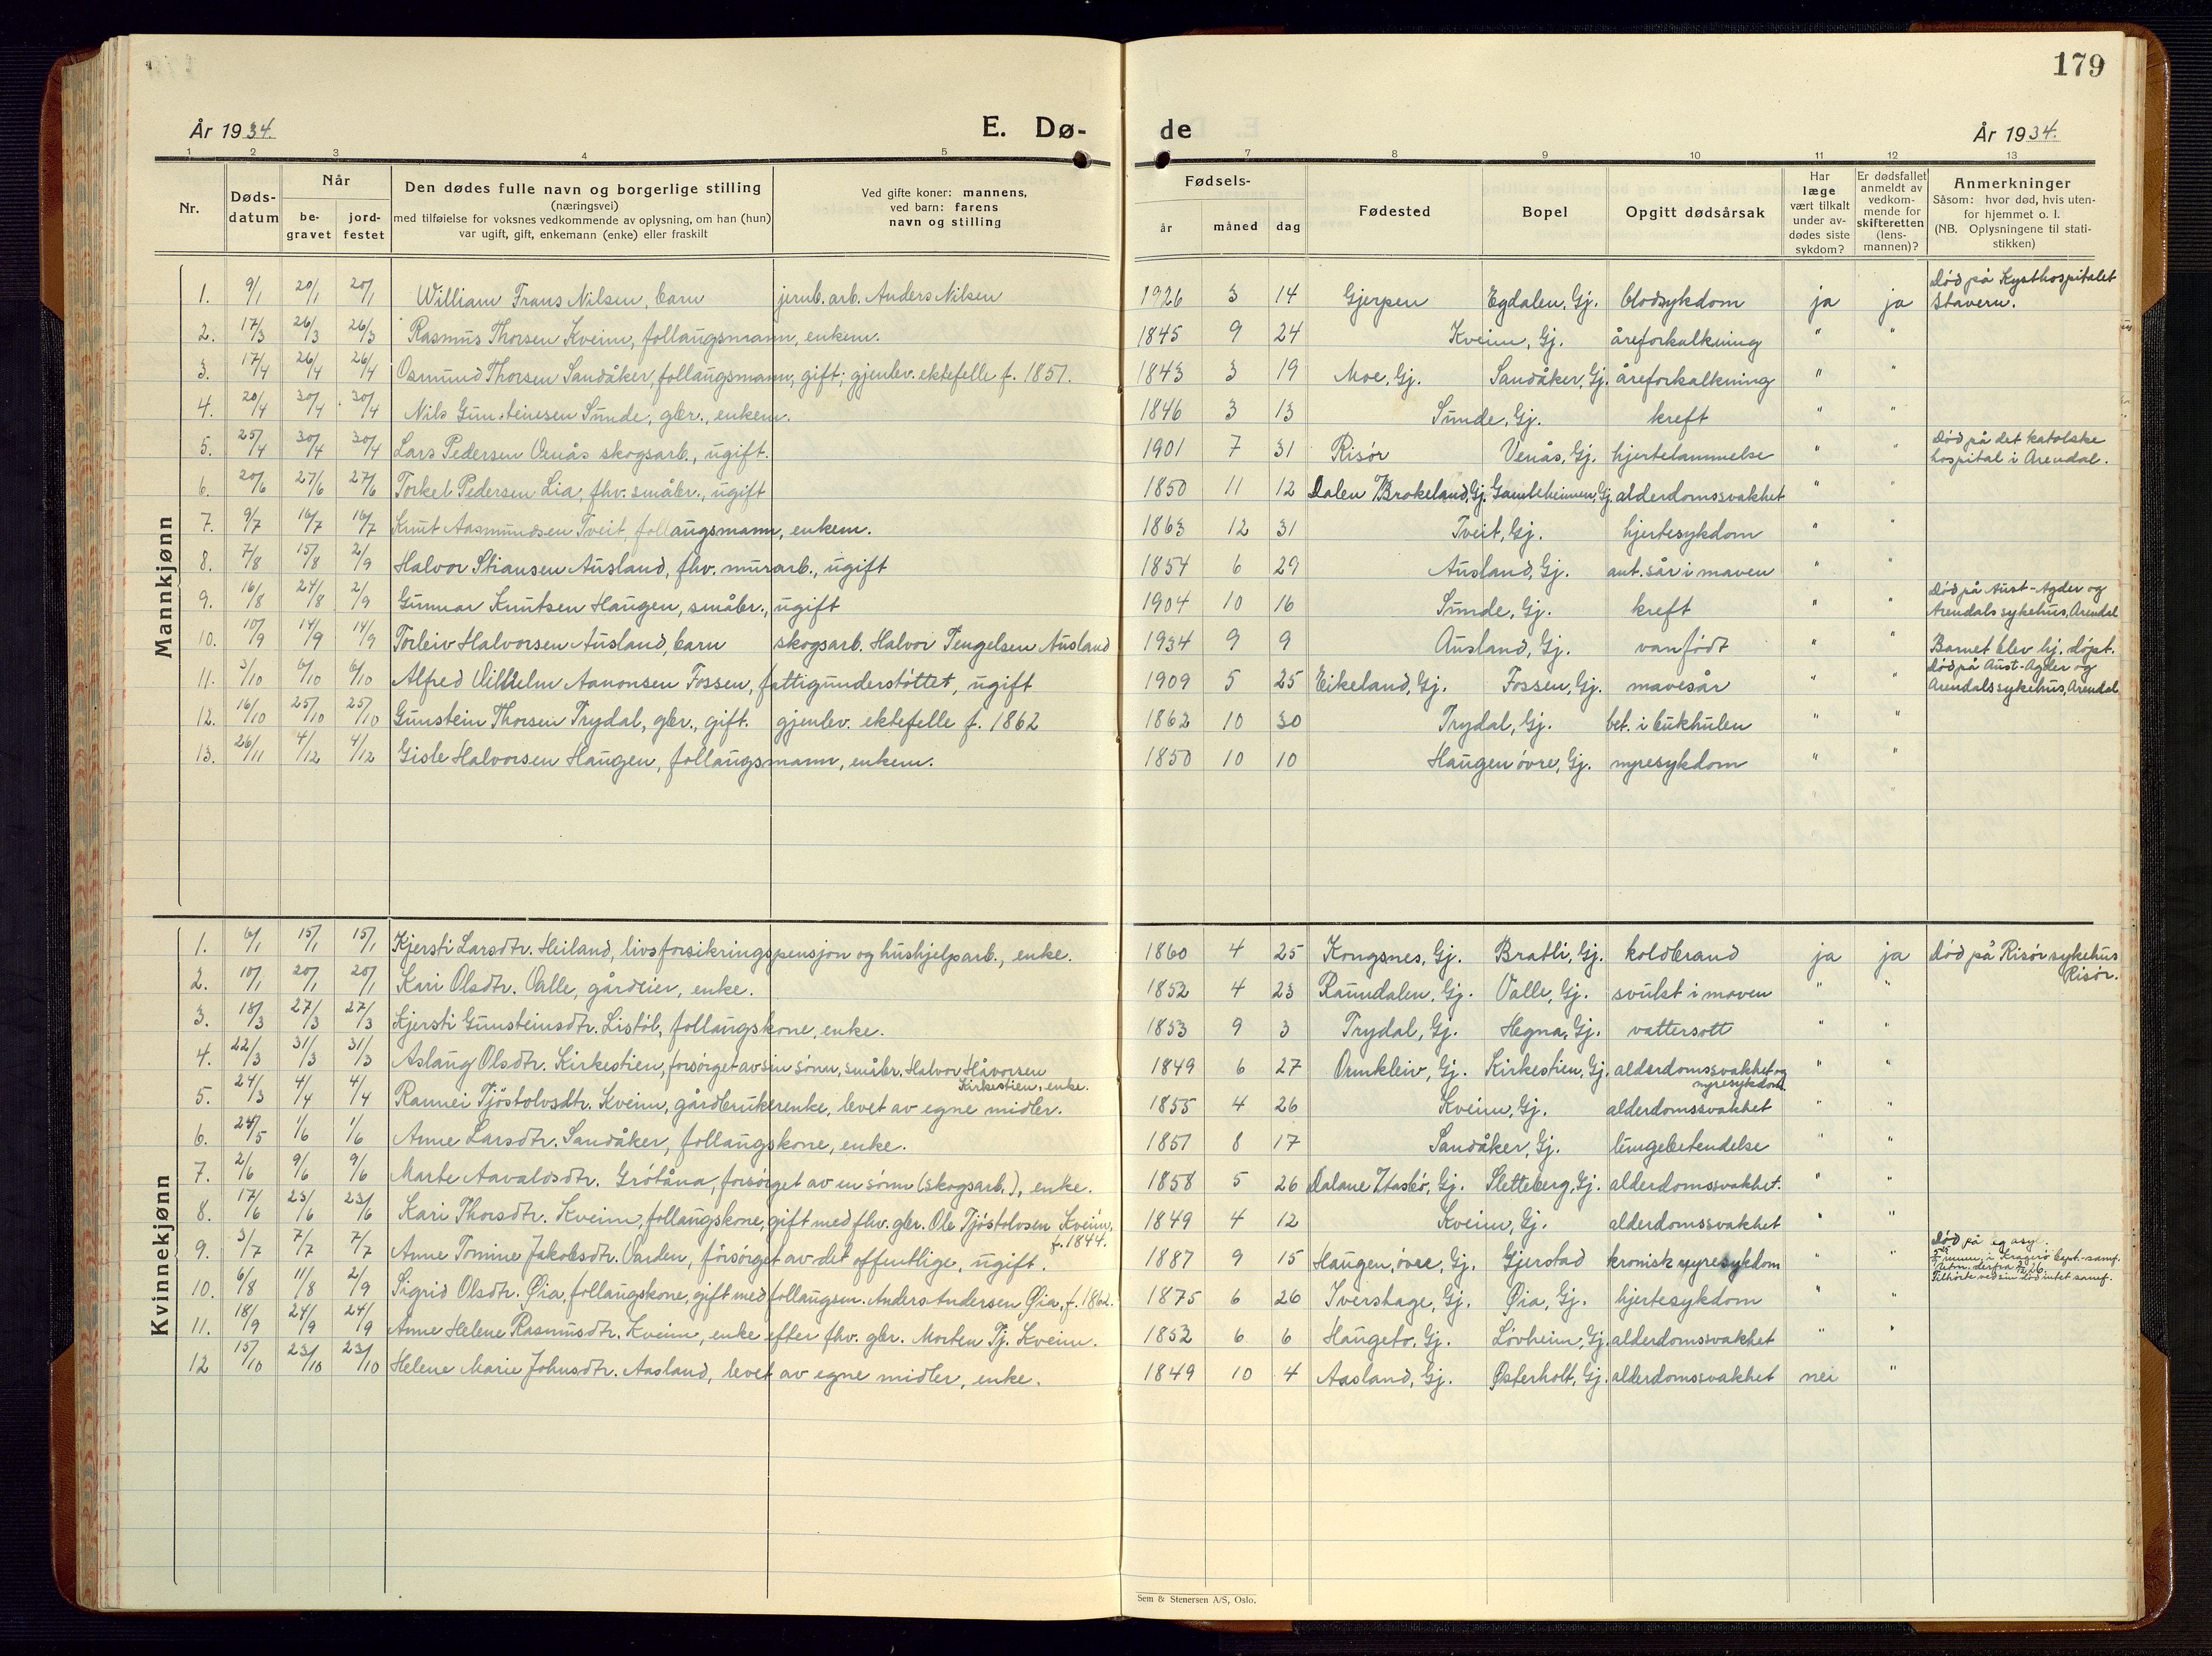 179
År 1934.
E. Dø-
de
År 1934.
1 2 3 4 5 7 8 9 10 11 12 13
Nr.
Døds-
datum
Når
be-
gravet
jord-
festet
Den dødes fulle navn og borgerlige stilling
(næringsvei)
med tilføielse for voksnes vedkommende av oplysning, om han (hun)
var ugift, gift, enkemann (enke) eller fraskilt
Ved gifte koner: mannens,
ved barn: farens
navn og stilling
Fødsels-
år
måned
dag
Fødested
Bopel
Opgitt dødsårsak
Har
læge
vært tilkalt
under av-
dødes siste
sykdom?
Er dødsfallet
anmeldt av
vedkom-
mende for
skifteretten
(lens-
mannen)?
Anmerkninger
Såsom: hvor død, hvis uten-
for hjemmet o. l.
(NB. Oplysningene til stati-
stikken)
Mannkjønn
1. 9/1 20/1 20/1 William Frans Nilsen, barn jernb. arb. Anders Nilsen 1926 3 14 Gjerpen Egdalen, Gj. blodsykdom ja ja Død på Kysthospitalet
Stavern.
2. 17/3 26/3 26/3 Rasmus Thorsen Kveim, follaugsmann, enkem. 1845 9 24 Kveim, Gj. åreforkalkning " "
3. 17/4 26/4 26/4 Osmund Thorsen Sandåker, follaugsmann, gift; gjenlev. ektefelle f. 1851. 1843 3 19 Moe, Gj. Sandåker, Gj. åreforkalkning " "
4. 20/4 30/4 30/4 Nils Gunsteinsen Sunde, gbr., enkem. 1846 3 13 Sunde, Gj. kreft " "
5. 25/4 30/4 30/4 Lars Pedersen Venås skogsarb., ugift. 1901 7 31 Risør Venås, Gj. hjertelammelse " " Død på det katolske
hospital i Arendal.
6. 20/6 27/6 27/6 Torkel Pedersen Lia, fhv. småbr., ugift 1850 11 12 Dalen /Brokeland, Gj. Gamleheimen, Gj. alderdomssvakhet " "
7. 9/7 16/7 16/7 Knut Aasmundsen Tveit, follaugsmann, enkem. 1863 12 31 Tveit, Gj. hjertesykdom " "
8. 7/8 15/8 2/9 Halvor Stiansen Ausland, fhv. murarb., ugift 1854 6 29 Ausland, Gj. ant. sår i maven " "
9. 16/8 24/8 2/9 Gunnar Knutsen Haugen, småbr., ugift 1904 10 16 Sunde, Gj. kreft " " Død på Aust-Agder og
Arendals sykehus, Arendal
10. 10/9 14/9 14/9 Torleiv Halvorsen Ausland, barn skogsarb. Halvor Tengelsen Ausland 1934 9 9 Ausland, Gj. vanfødt " " Barnet blev hj. døpt.
11. 3/10 6/10 6/10 Alfred Vilhelm Aanonsen Fossen, fattigunderstøttet, ugift 1909 5 25 Eikeland, Gj. Fossen, Gj. mavesår " " Død på Aust-Agder og
Arendals sykehus, Arendal
12. 16/10 25/10 25/10 Gunstein Thorsen Trydal, gbr., gift. gjenlev. ektefelle f. 1862 1862 10 30 Trydal, Gj. bet. i bukhulen " "
13. 26/11 4/12 4/12 Gisle Halvorsen Haugen, follaugsmann, enkem. 1850 10 10 Haugen øvre, Gj. nyresykdom " "
Kvinnekjønn
1. 6/1 15/1 15/1 Kjersti Larsdtr. Heiland, livsforsikringspensjon og hushjelparb., enke. 1860 4 25 Kongsnes, Gj. Bratli, Gj. koldbrand ja ja Død på Risør sykehus
Risør.
2. 10/1 20/1 20/1 Kari Olsdtr. Valle, gårdeier, enke. 1852 4 23 Raundalen, Gj. Valle, Gj. svulst i maven " "
3. 18/3 27/3 27/3 Kjersti Gunsteinsdtr. Listøl, follaugskone, enke. 1853 9 3 Trydal, Gj. Hegna, Gj. vattersott " "
4. 22/3 31/3 31/3 Aslaug Olsdtr. Kirkestien, forsørget av sin sønn, småbr. Halvor Håvorsen
Kirkestien, enke. 1849 6 27 Ormkleiv, Gj. Kirkestien, Gj. alderdomssvakhet og
nyresykdom " "
5. 24/3 4/4 4/4 Rannei Tjøstolvsdtr. Kveim, gårdbrukerenke, levet av egne midler. 1855 4 26 Kveim, Gj. alderdomssvakhet " "
6. 24/5 1/6 1/6 Anne Larsdtr. Sandåker, follaugskone, enke. 1851 8 17 Sandåker, Gj. lungebetendelse " "
7. 2/6 9/6 9/6 Marte Aavaldsdtr. Grötåna, forsørget av en sønn (skogsarb.), enke. 1858 5 26 Dalane /Hasbø, Gj. Sletteberg, Gj. alderdomssvakhet. " "
8. 17/6 23/6 23/6 Kari Thorsdtr. Kveim, follaugskone, gift med fhv. gbr. Ole Tjøstolvsen Kveim,
f. 1844. 1849 4 12 Kveim, Gj. alderdomssvakhet " "
9. 3/7 7/7 7/7 Anne Tomine Jakobsdtr. Varden, forsørget av det offentlige, ugift. 1887 9 15 Haugen, øvre, Gj. Gjerstad kronisk nyresykdom " " Død på eg asyl.
innm. i Kragerø bapt.-samf.
Utm. derfra 26.
Tilhørte ved sin død intet samf.
10. 6/8 11/8 2/9 Sigrid Olsdtr. Øia, follaugskone, gift med follaugsm. Anders Andersen Øia, f. 1862. 1875 6 26 Ivershage, Gj. Øia, Gj. hjertesykdom " "
11. 18/9 24/9 24/9 Anne Helene Rasmusdtr. Kveim, enke efter fhv. gbr. Morten Tj. Kveim. 1852 6 6 Haugebo, Gj. Løvheim, Gj. alderdomssvakhet " "
12 15/10 23/10 23/10 Helene Marie Johnsdtr. Aasland, levet av egne midler, enke. 1849 10 4 Aasland, Gj. Østerholt, Gj. alderdomssvakhet nei "
Sem & Stenersen A/S, Oslo.